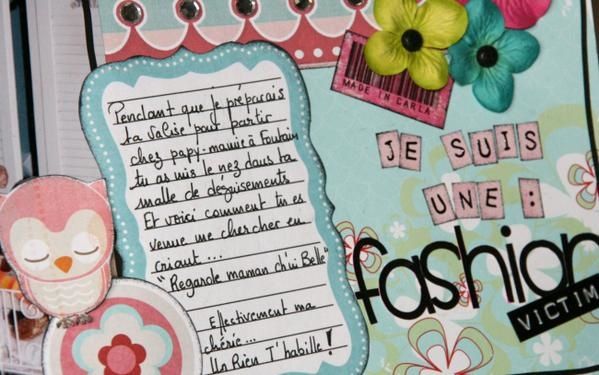 Pendant que je préparais
ta valise pour partir
chez papy-mamie à
tu as mis le nez dans ta
malle de déguisements
Et voici comment tu es
venue me chercher en
criant ...
"Regarde maman ch'ui Belle"
Effectivement ma
chérie...
Un Rien T'habille !
MADE IN CARLA
JE SUIS
UNE :
fashion
VICTIM